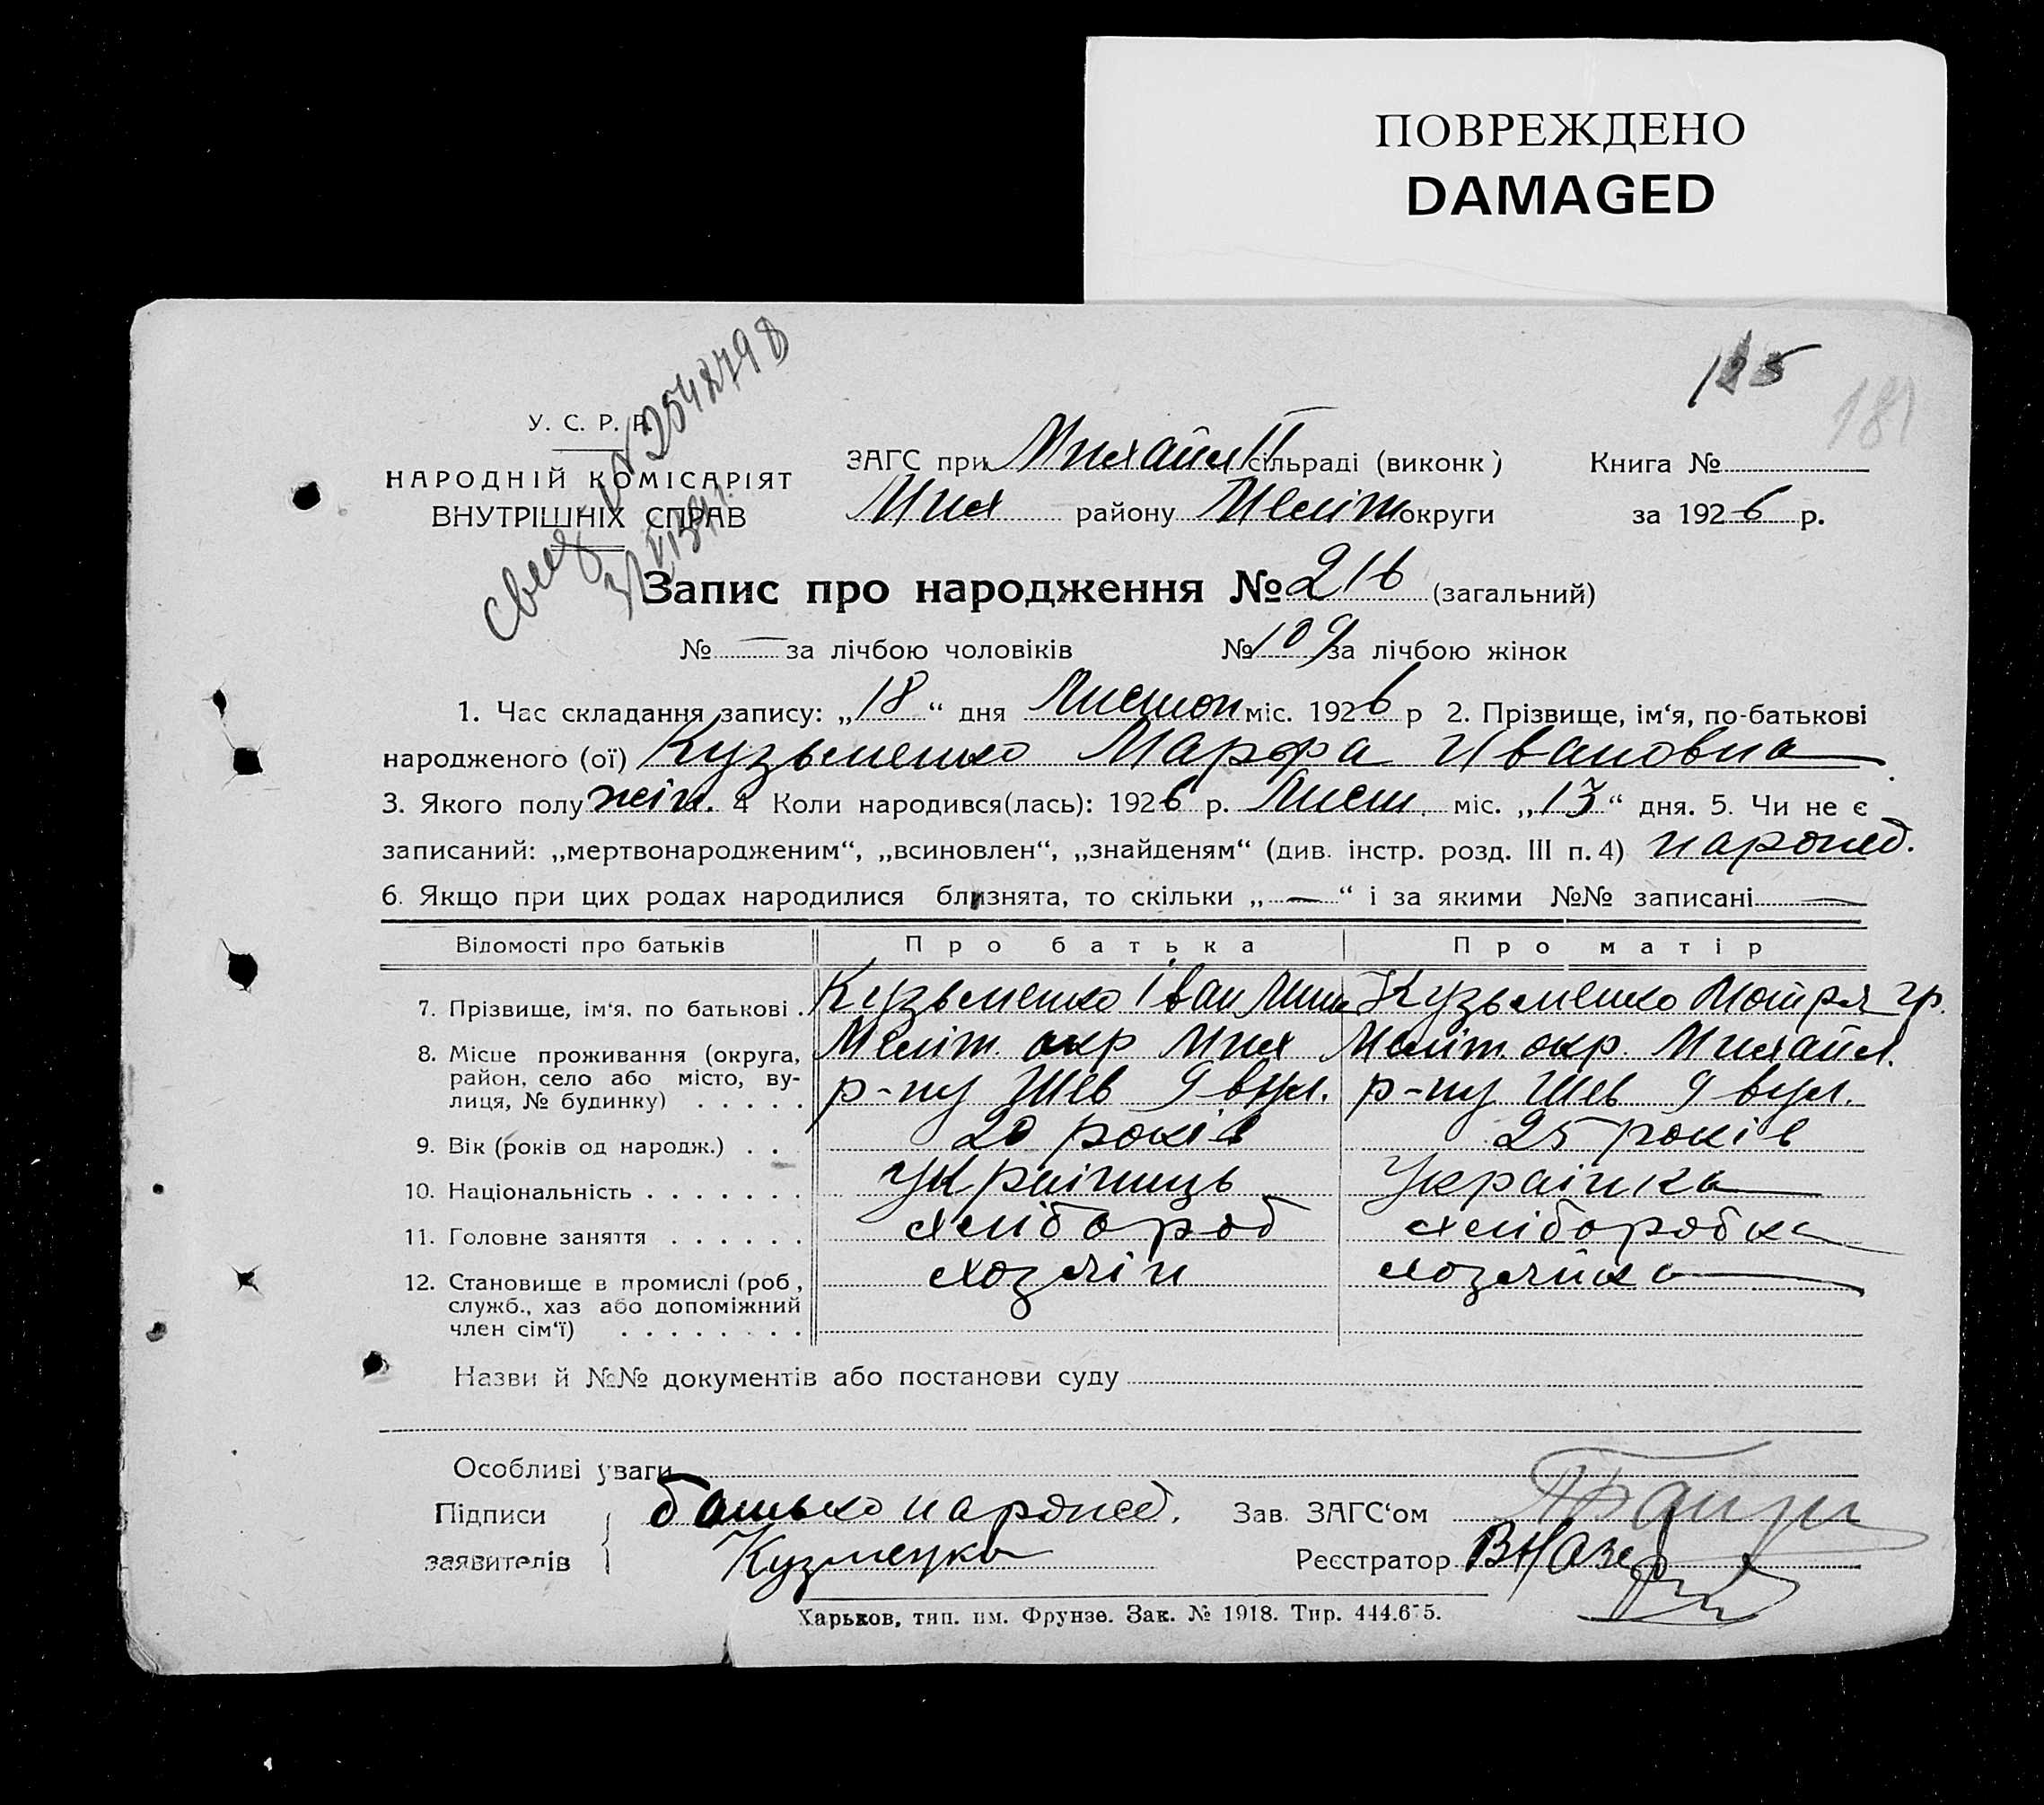 ПОВРЕЖДЕНО
DAMAGED
125
181
У. С. Р. Р.
НАРОДНІЙ КОМІСАРІЯТ
ВНУТРІШНІХ СПРАВ
N 2542798
ЗАГС при Михайл II сільраді (виконк)
Книга №
Мих району Меліт округи
за 1926 р.
Запис про народження № 216 (загальний)
№ — за лічбою чоловіків № 109 за лічбою жінок
1. Час складання запису: „18“ дня Листоп міс. 1926 р 2. Прізвище, ім‘я, по-батькові
народженого (ої) Кузьменко Марфа Ивановна
3. Якого полу жін. 4 Коли народився(лась): 1926 р. Лист. міс. „13“ дня. 5. Чи не є
записаний: „мертвонародженим“, „всиновлен“, „знайденям“ (див. інстр. розд. III п. 4) нарожд.
6. Якщо при цих родах народилися близнята, то скільки „—“ і за якими №№ записані —
Відомості про батьків
Про батька
Про матір
7. Прізвище, ім‘я, по батькові . Кузьменко Іван Кузьменко Мотря гр.
8. Місце проживання (округа,
район, село або місто, ву-
лиця, № будинку) . . . . .
Меліт. окр Мих
р-ну Шев 9 вул.
Меліт. окр. Михайл.
р-ну Шев 9 вул.
9. Вік (років од народж.) . . 20 років 25 років
10. Національність . . . . . . . Українець Українка
11. Головне заняття . . . . . . хлібороб хліборобка
12. Становище в промислі (роб,
служб., хаз або допоміжний
член сім‘ї) . . . . . . . .
хозяін
хозяйка
Назви й №№ документів або постанови суду
Особливі уваги
Підписи
заявителів
батько нарожд.
Кузменко
Зав. ЗАГС‘ом
Реєстратор
Харьков, тип. им. Фрунзе. Зак. № 1918. Тир. 444.675.